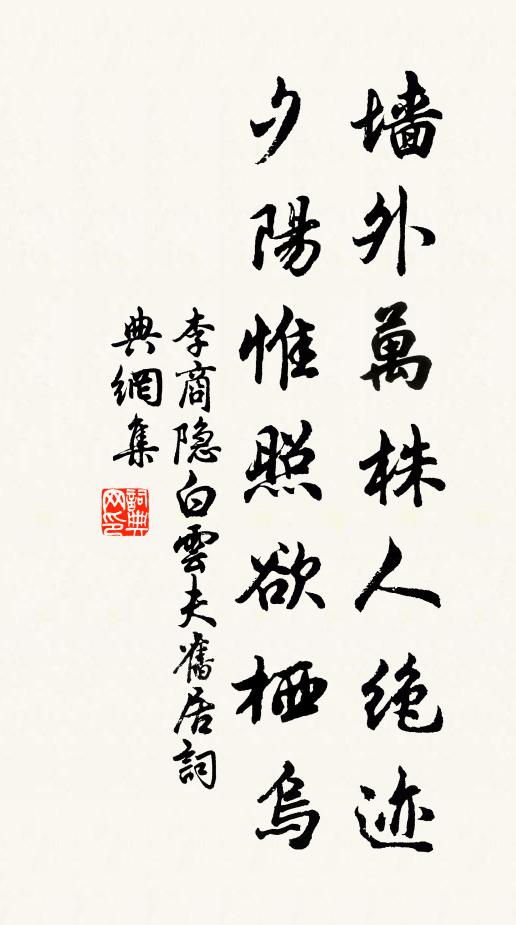 墙外萬株人绝迹
夕陽惟照欲栖烏
李商隐白雲夫舊居詞
典網集
詞典网印